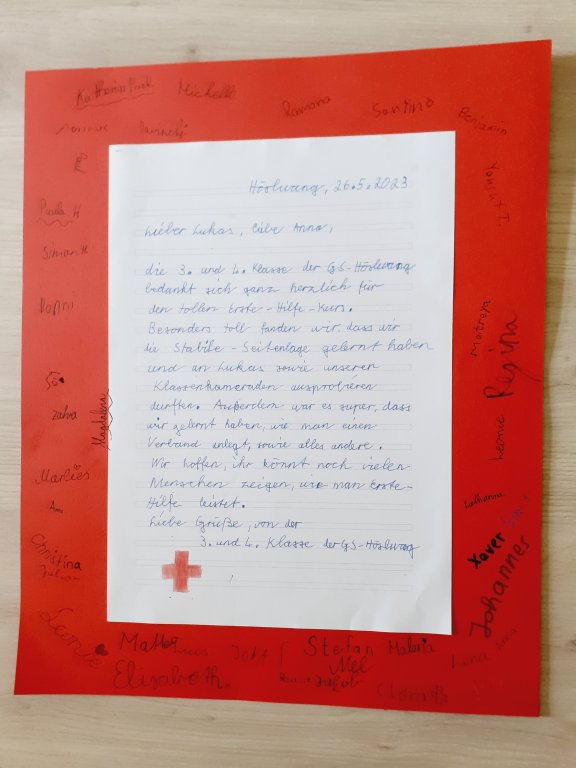 Katharina
Michelle
Ramona
Santino
Benjamin
Paula H
Simon H
Ronni
zahra
Magdalena
Marlies
Christina
Leonie
Höslwang, 26.5.2023
Lieber Lukas, liebe Anna,
die 3. und 4. Klasse der GS-Höslwang
bedankt sich ganz herzlich für
den tollen Erste-Hilfe-Kurs.
Besonders toll fanden wir, dass wir
die Stabile-Seitenlage gelernt haben
und an Lukas sowie unseren
Klassenkameraden ausprobieren
durften. Außerdem war es super, dass
wir gelernt haben, wie man einen
Verband anlegt, sowie alles andere.
Wir hoffen, ihr könnt noch vielen
Menschen zeigen, wie man Erste-
Hilfe leistet.
Liebe Grüße, von der
3. und 4. Klasse der GS-Höslwang
Maitreya
Regina
Leonie
Xaver
Johannes
Stefan
Elisabeth
Jakob
Luna
Anna